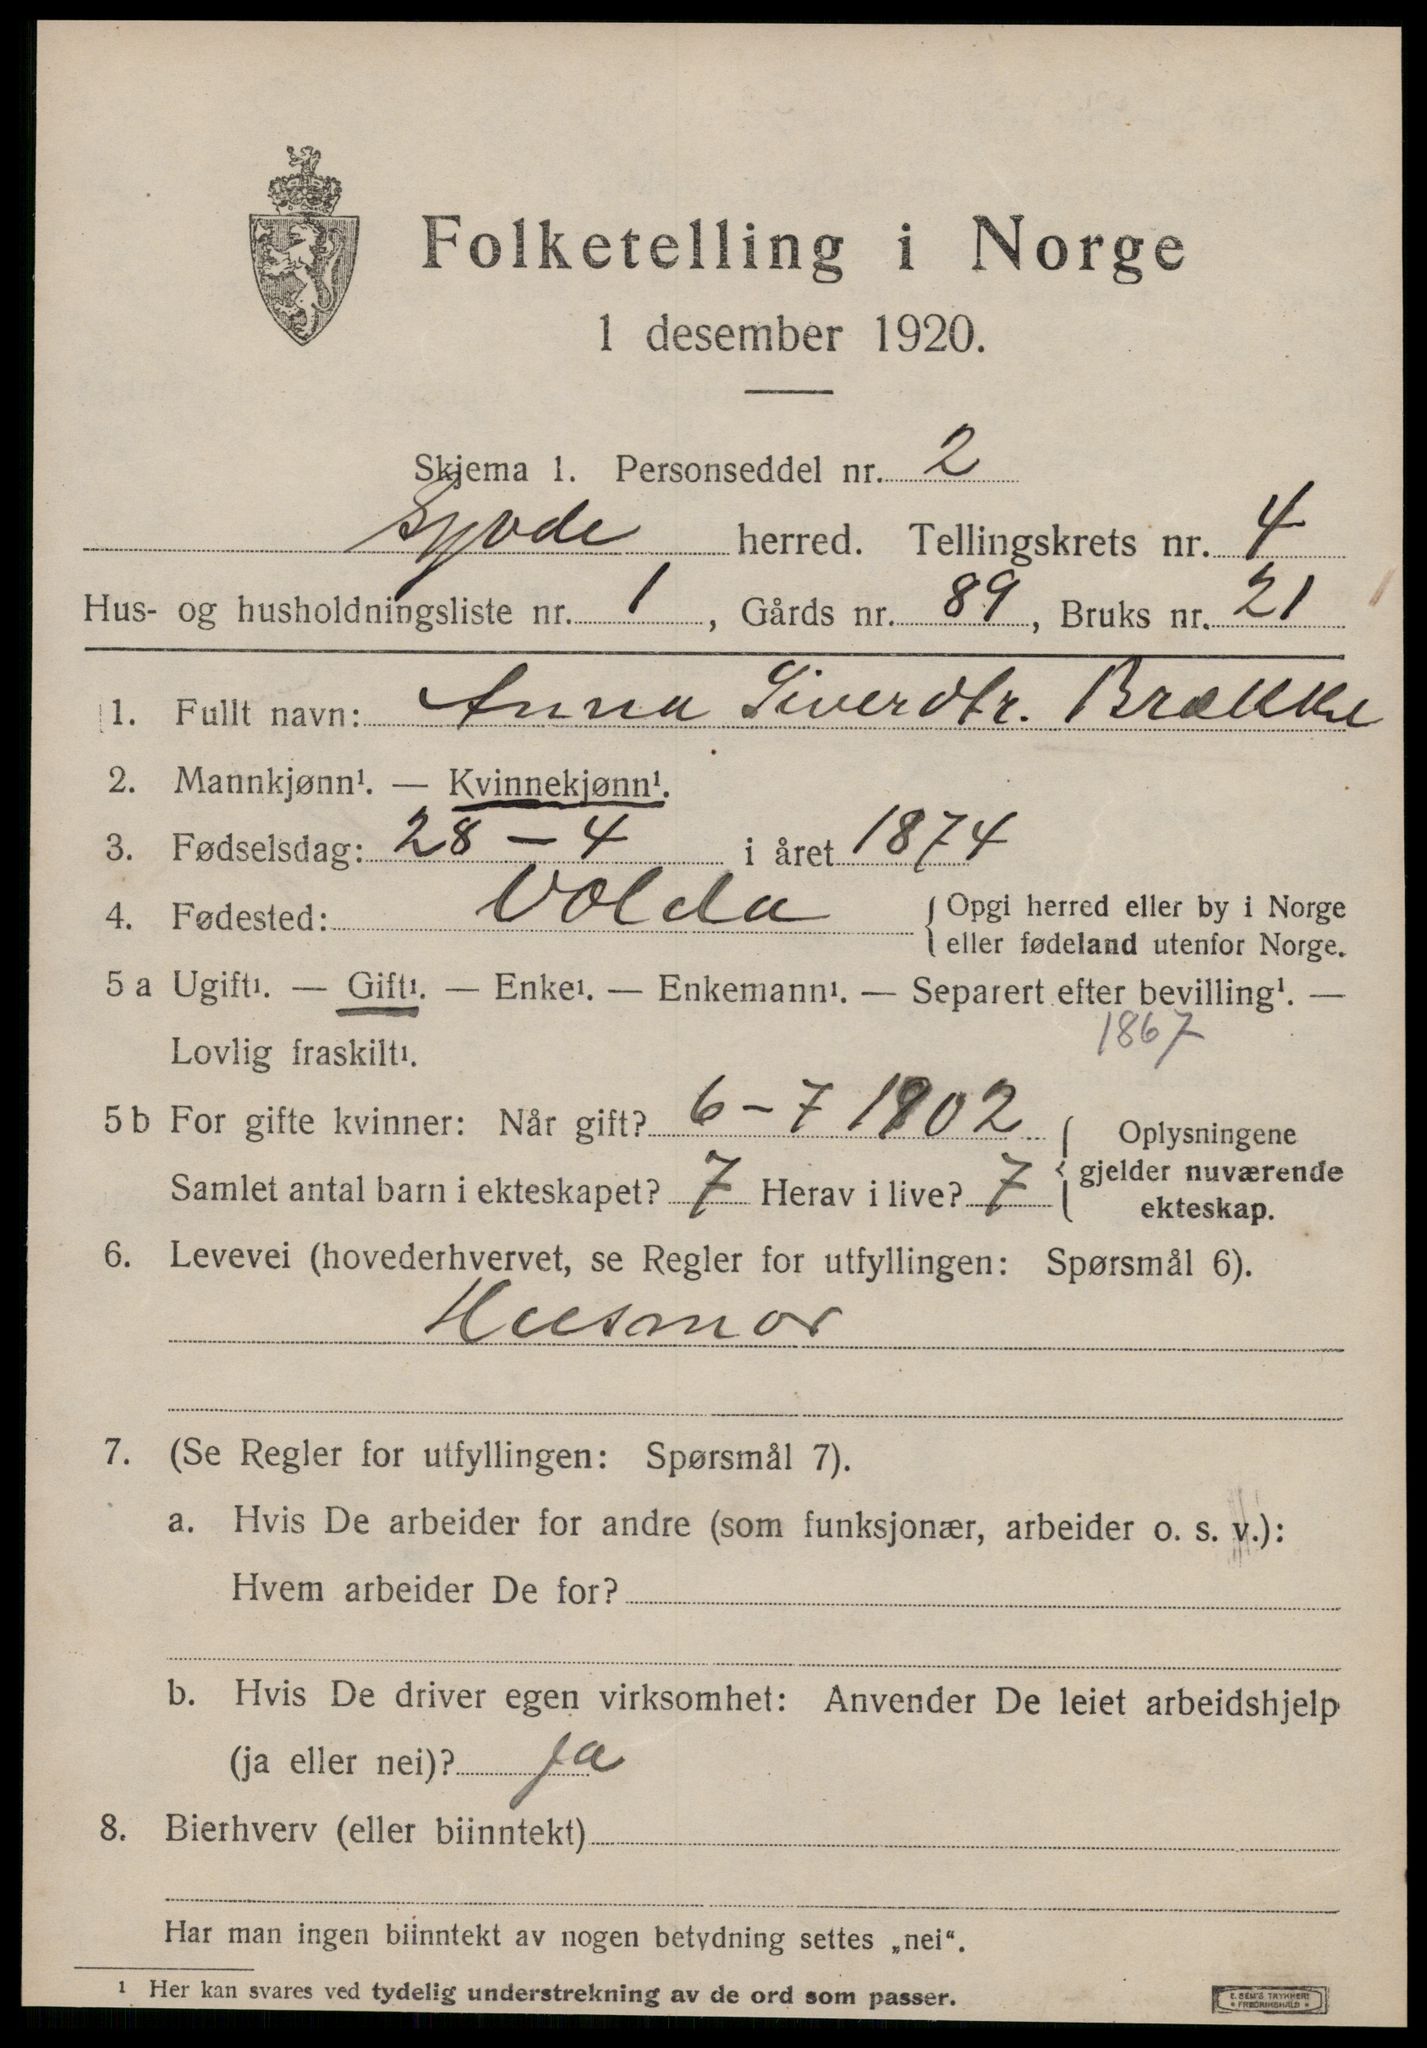 Folketelling i Norge
1 desember 1920.
Skjema 1. Personseddel nr. 2
herred. Tellingskrets nr. 4
Hus- og husholdningsliste nr. 1, Gårds nr. 89, Bruks nr. 21
1. Fullt navn: Anna Siverdtr. Brække
2. Mannkjønn¹. — Kvinnekjønn¹.
3. Fødselsdag: 28 – 4 i året 1874
4. Fødested: Volda { Opgi herred eller by i Norge
eller fødeland utenfor Norge.
5 a Ugift¹. — Gift¹. — Enke¹. — Enkemann¹. — Separert efter bevilling¹. —
Lovlig fraskilt¹.
1867
5 b For gifte kvinner: Når gift? 6 – 7 1902 { Oplysningene
gjelder nuværende
ekteskap.
Samlet antal barn i ekteskapet? 7 Herav i live? 7
6. Levevei (hovederhvervet, se Regler for utfyllingen: Spørsmål 6).
Husmor
7. (Se Regler for utfyllingen: Spørsmål 7).
a. Hvis De arbeider for andre (som funksjonær, arbeider o. s. v.):
Hvem arbeider De for?
b. Hvis De driver egen virksomhet: Anvender De leiet arbeidshjelp
(ja eller nei)? ja
8. Bierhverv (eller biinntekt)
Har man ingen biinntekt av nogen betydning settes „nei".
¹ Her kan svares ved tydelig understrekning av de ord som passer.
E. SEM'S TRYKKERI
* FREDRIKSHALD *